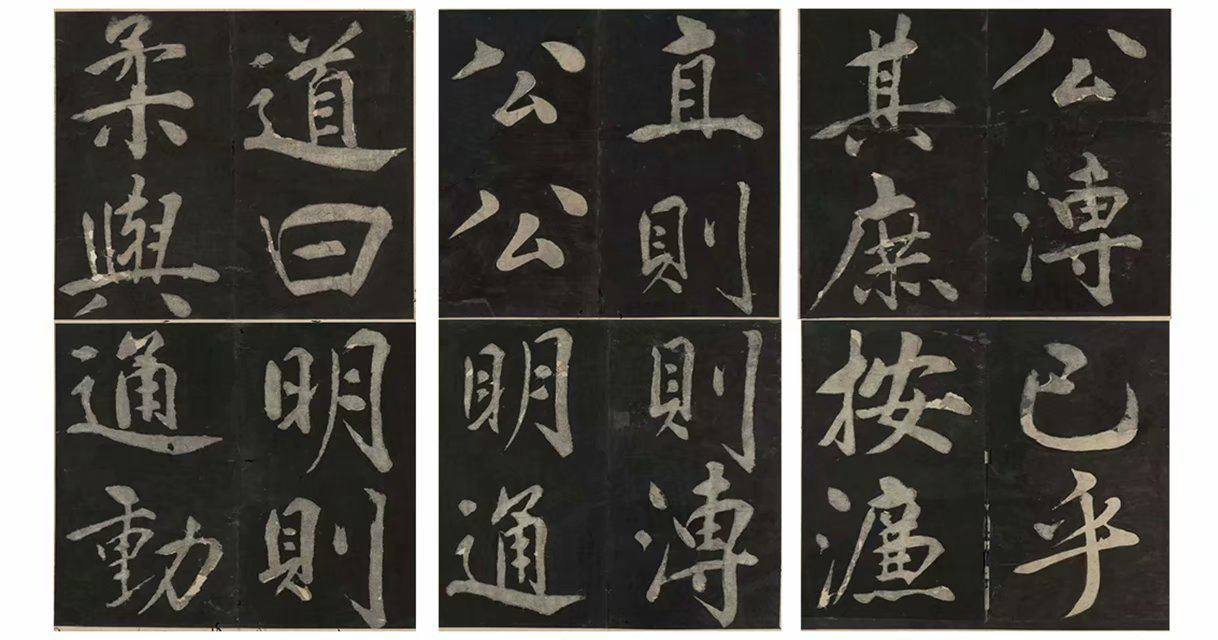 道曰
柔與
明則
通動
直則
公公
則溥
明通
公溥
其庶
已乎
按濂